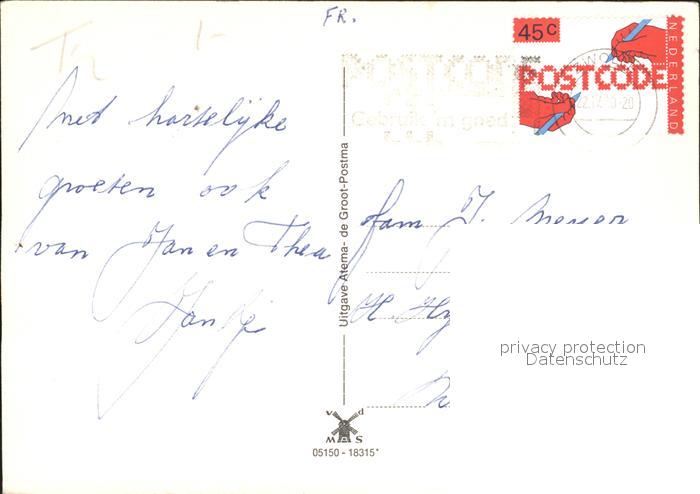 FR.
45c
NEDERLAND
POSTCODE
POSTCODE
Gebruik 'm goed
met hartelijke
groeten ook
van Jan en Thea
Jantje
fam J.
H.
Uitgave Atema- de Groot-Postma
privacy protection
Datenschutz
v d
MAS
05150 - 18315*